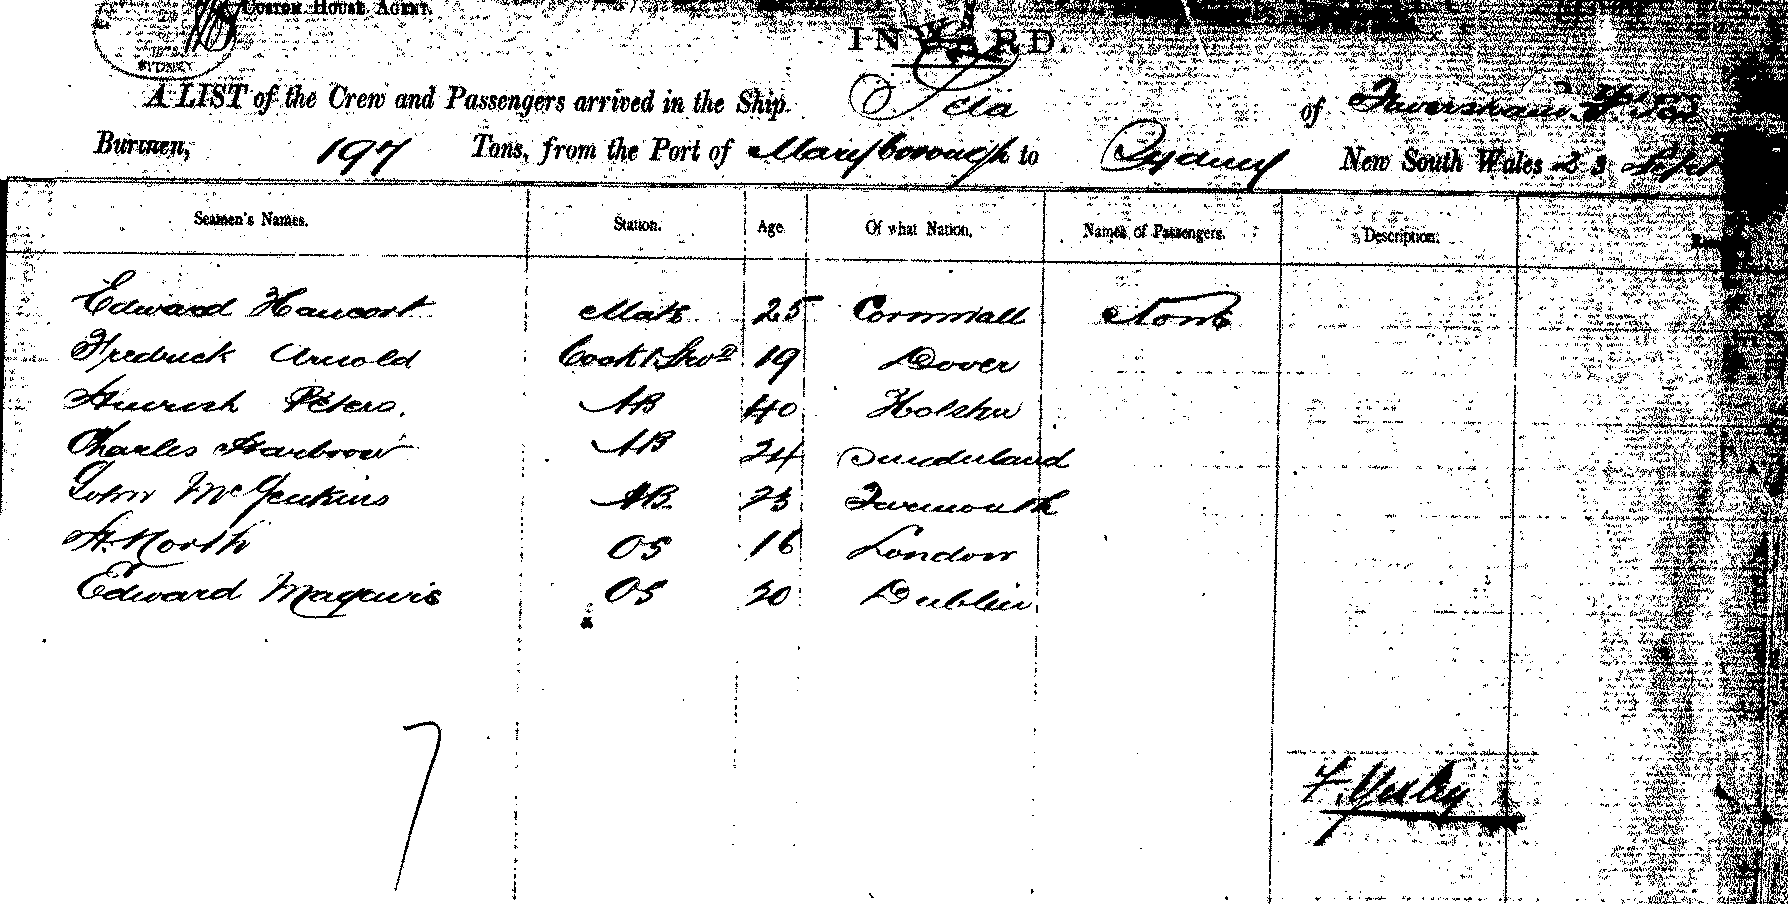 CUSTOM HOUSE AGENT.
SYDNEY
INWARD.
A LIST of the Crew and Passengers arrived in the Ship. of
Burthen, 197 Tons, from the Port of Maryborough to Sydney New South Wales 23 Sept
Seamen's Names. Station. Age Of what Nation, Names of Passengers. Description.
Edward Mate 25 Cornwall None
Fredrick Arnold Cook & Stwd 19 Dover
Peters. AB 40
Charles AB 24 Sunderland
John McJenkins AB. 23
H. North OS 16 London
Edward OS 20 Dublin
7